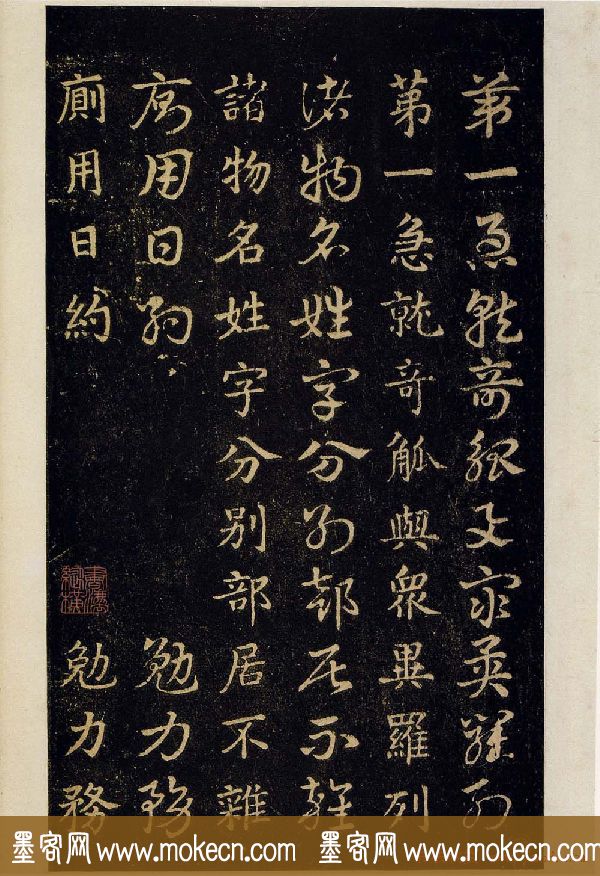 第一急就奇觚與衆異羅列
第一急就奇觚與衆異羅列
諸物名姓字分別部居不雜
諸物名姓字分別部居不雜
廁用日約 勉力務
廁用日約 勉力務
墨客网 www.mokecn.com 墨客网 www.mokecn.com